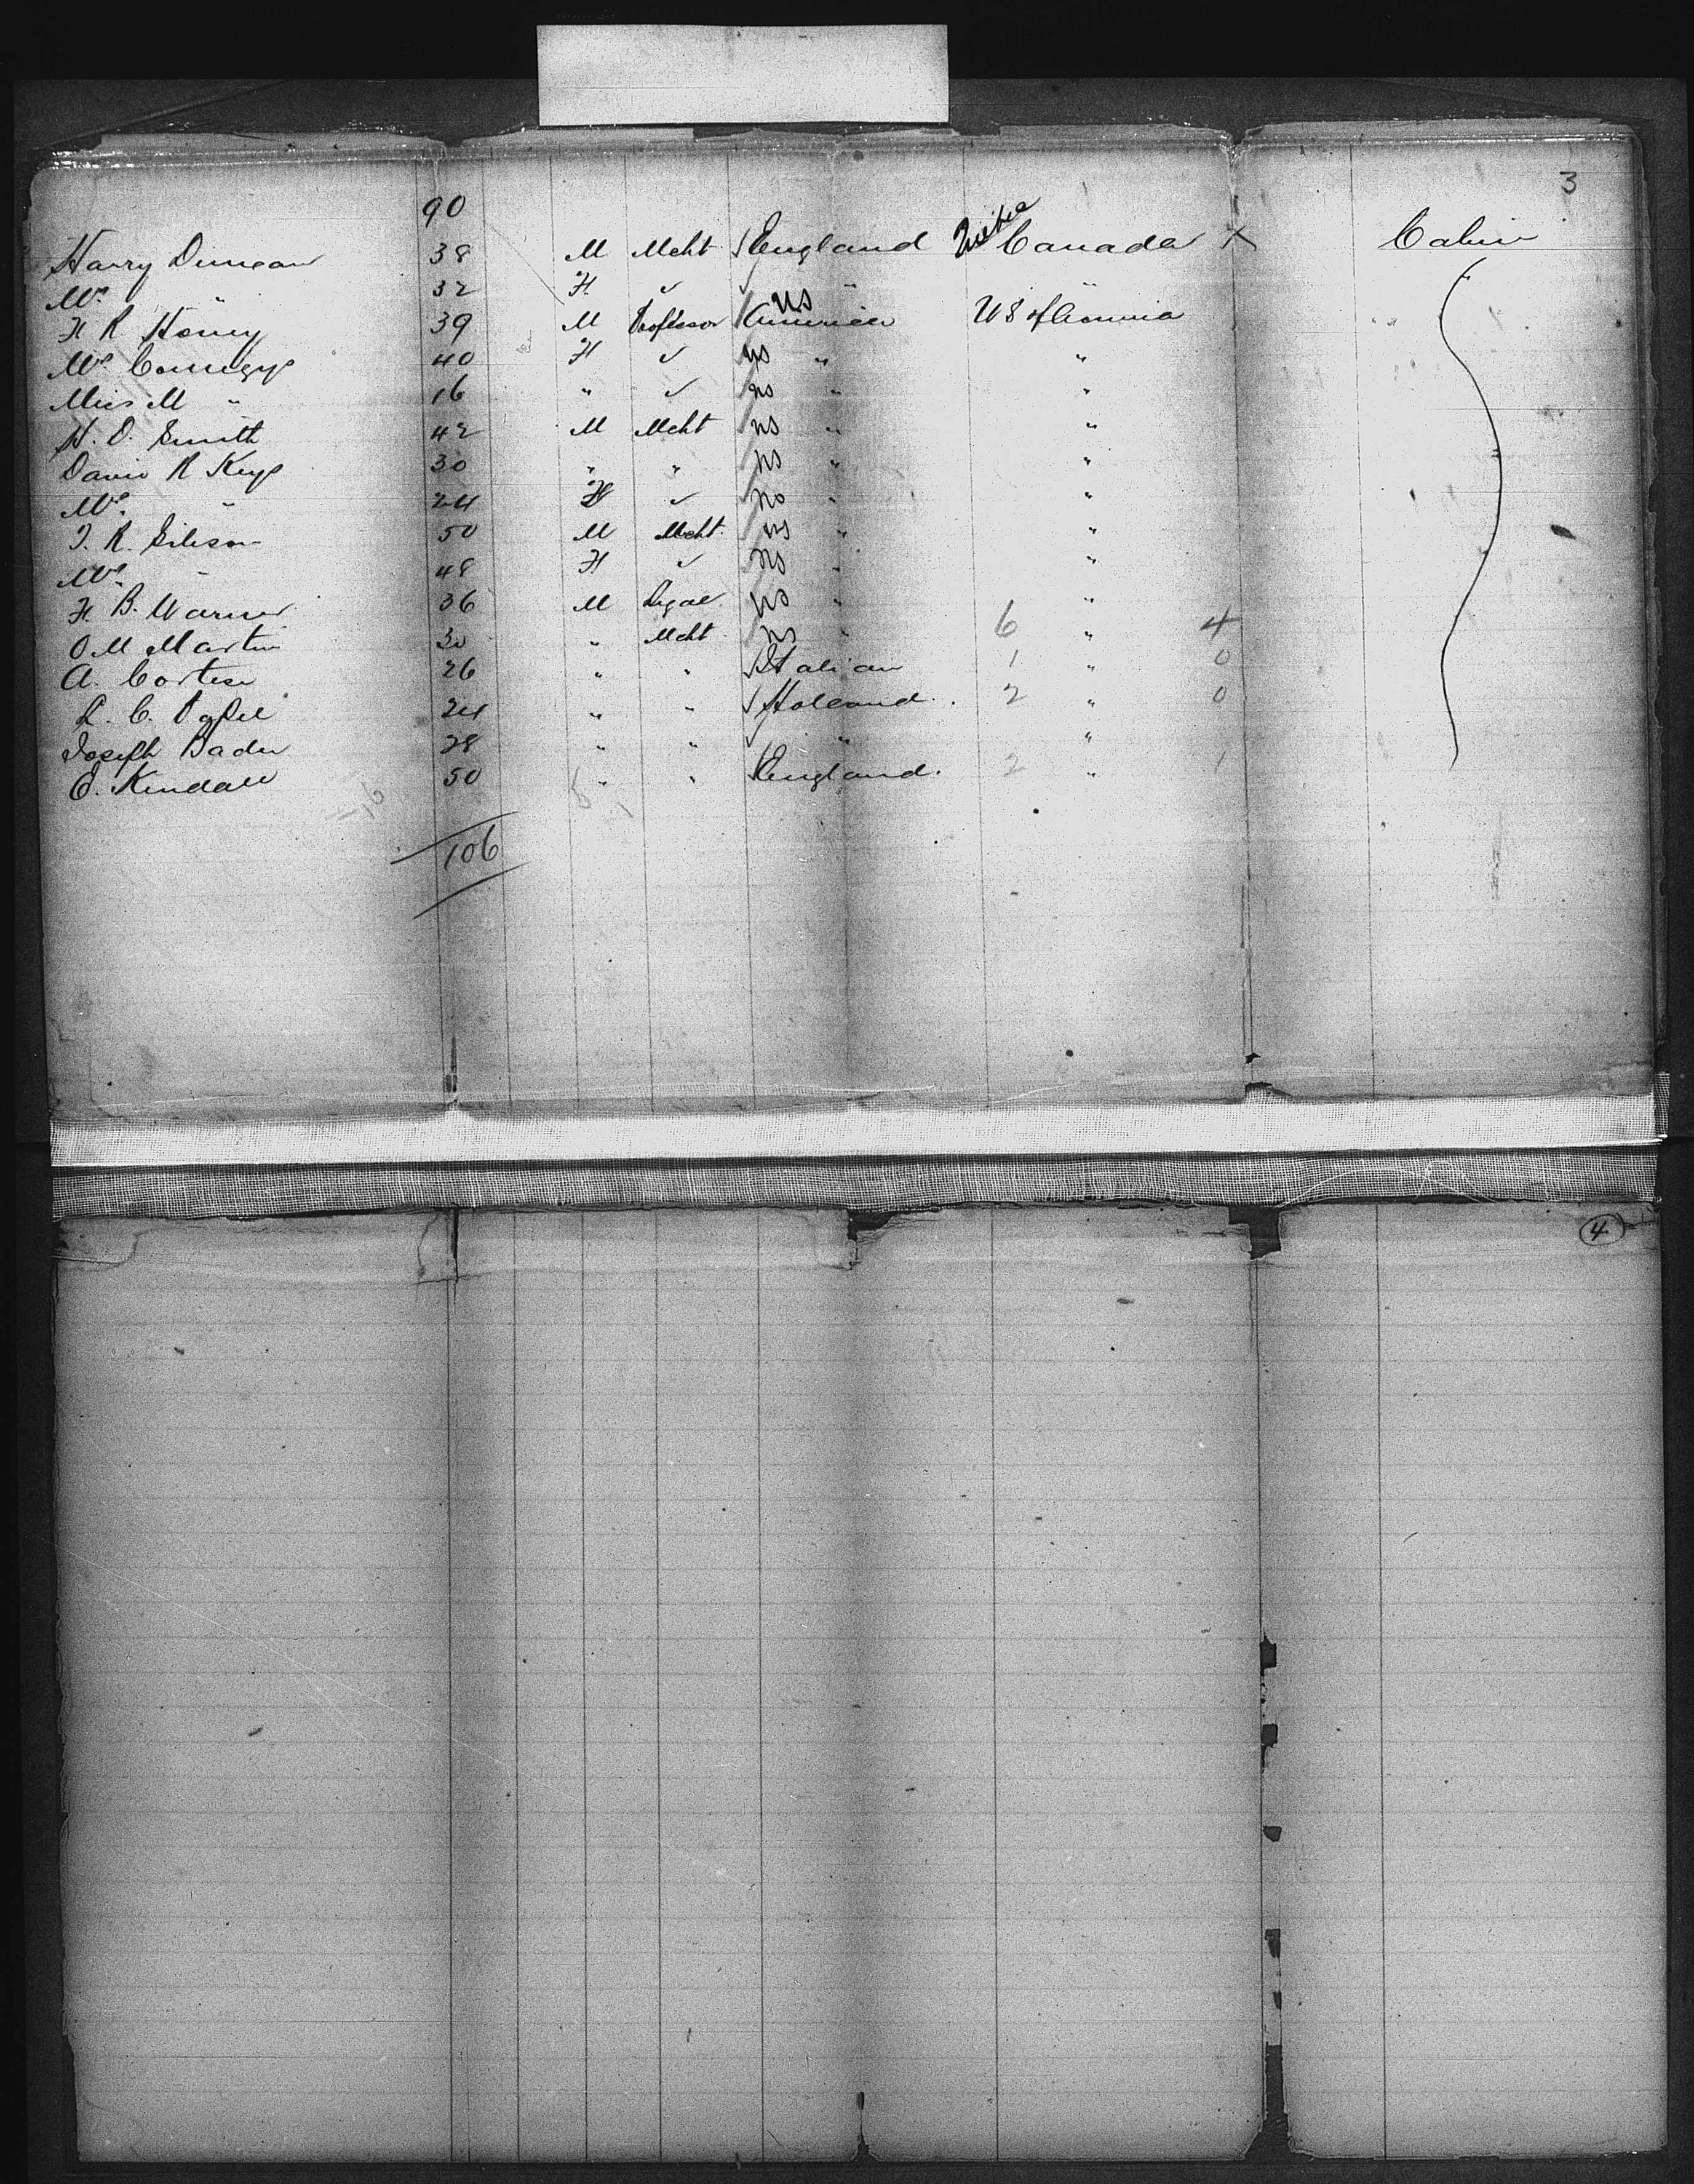 3
90
Harry Duncan 38 M Mcht England Canada X Cabin
Mrs " 32 F ✓ ✓ " "
F R 39 M Professor America US US of America
Mrs Comegys 40 F ✓ US " "
Miss M " 16 " ✓ US " "
H. D. Smith 42 M Mcht US " "
David R Keys 30 " " US " "
Mrs " 24 F ✓ US " "
T. R. Gibson 50 M Mcht. US " "
Mrs " 48 F ✓ US " "
F. B. Warner 36 M Legal US " "
O M Martin 30 " Mcht US " 6 " 4
A. Cortesi 26 " " Italian 1 " 0
L. C. 24 " " Holland. 2 " 0
Joseph Bader 28 " " " "
E. Kendall 50 " " England. 2 " 1
16
106
4